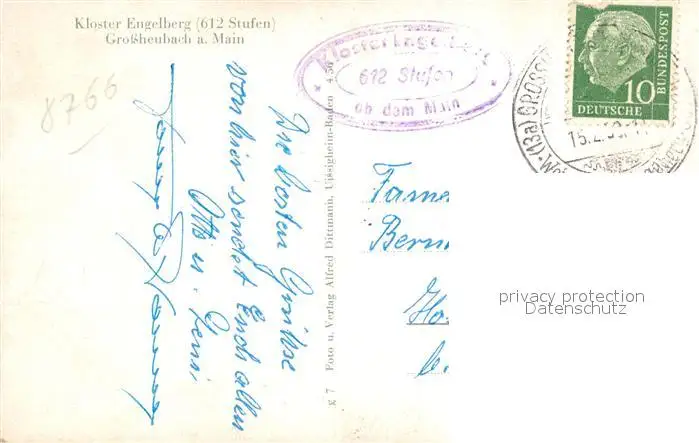 Kloster Engelberg (612 Stufen)
Großheubach a. Main
8266
Kloster Engelberg
612 Stufen
ob dem Main
DEUTSCHE
BUNDESPOST
10
(13a) GROSSH
15.2.
Die besten Grüße
von hier sendet Euch allen
Otto u.
Foto u. Verlag Alfred Dittmann, Uissigheim-Baden 4.56
g 7
Fame
Bern
Ha
b.
privacy protection
Datenschutz